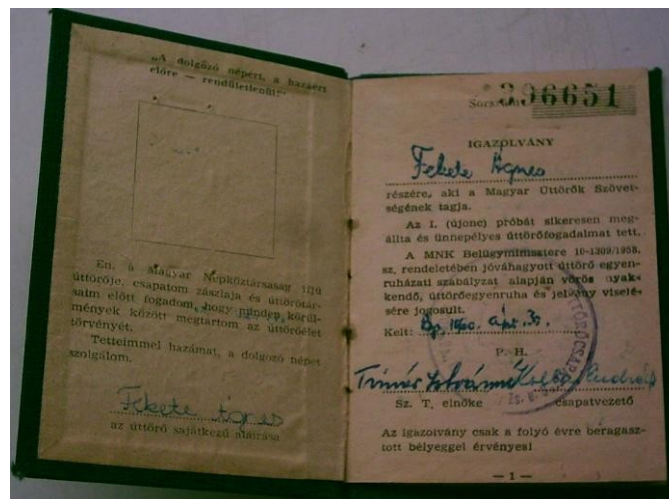 „A dolgozó népért, a hazáért
előre — rendületlenül!"
Én, a Magyar Népköztársaság ifjú
úttörője, csapatom zászlaja és úttörőtár-
saim előtt fogadom, hogy minden körül-
mények között megtartom az úttörőélet
törvényét.
Tetteimmel hazámat, a dolgozó népet
szolgálom.
Fekete Ágnes
az úttörő sajátkezű aláírása
396651
IGAZOLVÁNY
Fekete Ágnes
részére, aki a Magyar Úttörők Szövet-
ségének tagja.
Az I. (újonc) próbát sikeresen meg-
állta és ünnepélyes úttörőfogadalmat tett.
A MNK Belügyminisztere 10-1309/1958.
sz. rendeletében jóváhagyott úttörő egyen-
ruházati szabályzat alapján vörös nyak-
kendő, úttörőegyenruha és jelvény viselé-
sére jogosult.
Kelt: Bp. 1960. ápr.
P. H.
Sz. T. elnöke csapatvezető
Az igazolvány csak a folyó évre beragasz-
tott bélyeggel érvényes!
— 1 —